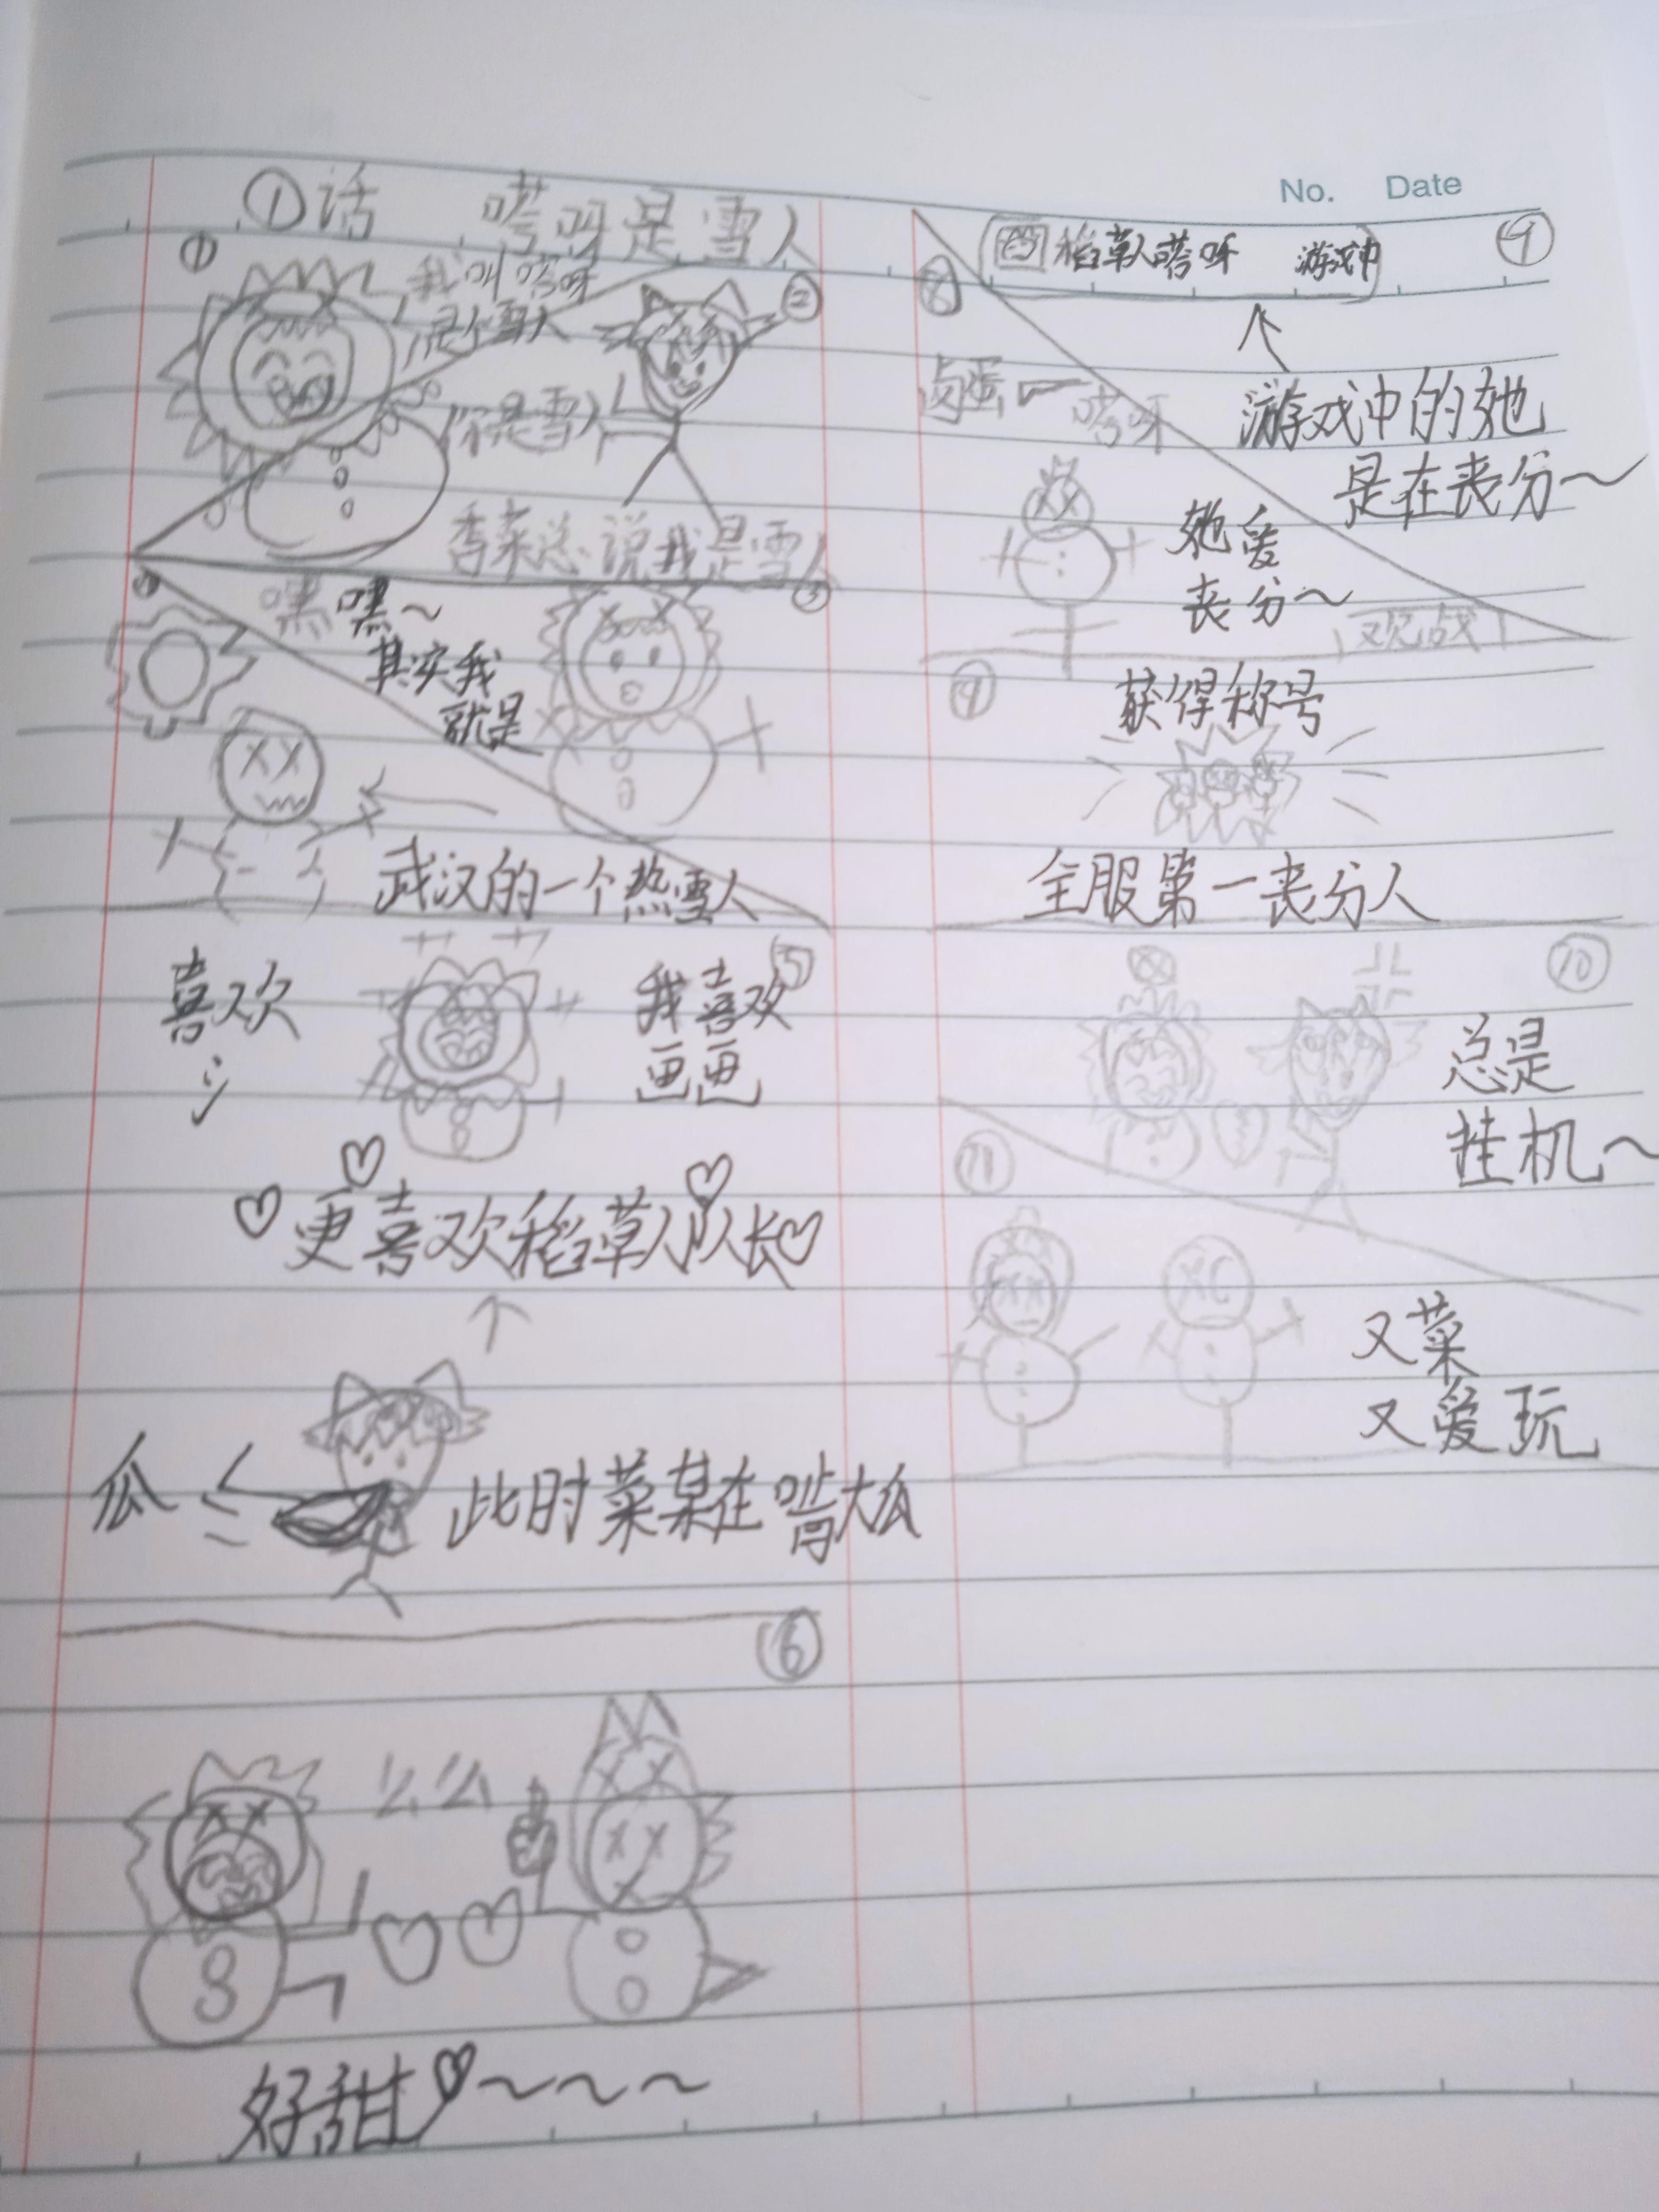 ①话 嗒呀是雪人
①
我叫嗒呀
是个雪人
②
你是雪人
香菜总说我是雪人
③
嘿嘿~
其实我
就是
武汉的一个热雪人
⑤
喜欢
我喜欢
画画
更喜欢稻草人队长
瓜
此时菜某在啃大瓜
⑥
么么
好甜~~~
No. Date
稻草人嗒呀 游戏中
⑧
卤蛋一嗒呀
游戏中的她
是在丧分~
她爱
丧分~
观战
⑨
获得称号
全服第一丧分人
⑩
总是
挂机~
⑪
又菜
又爱玩